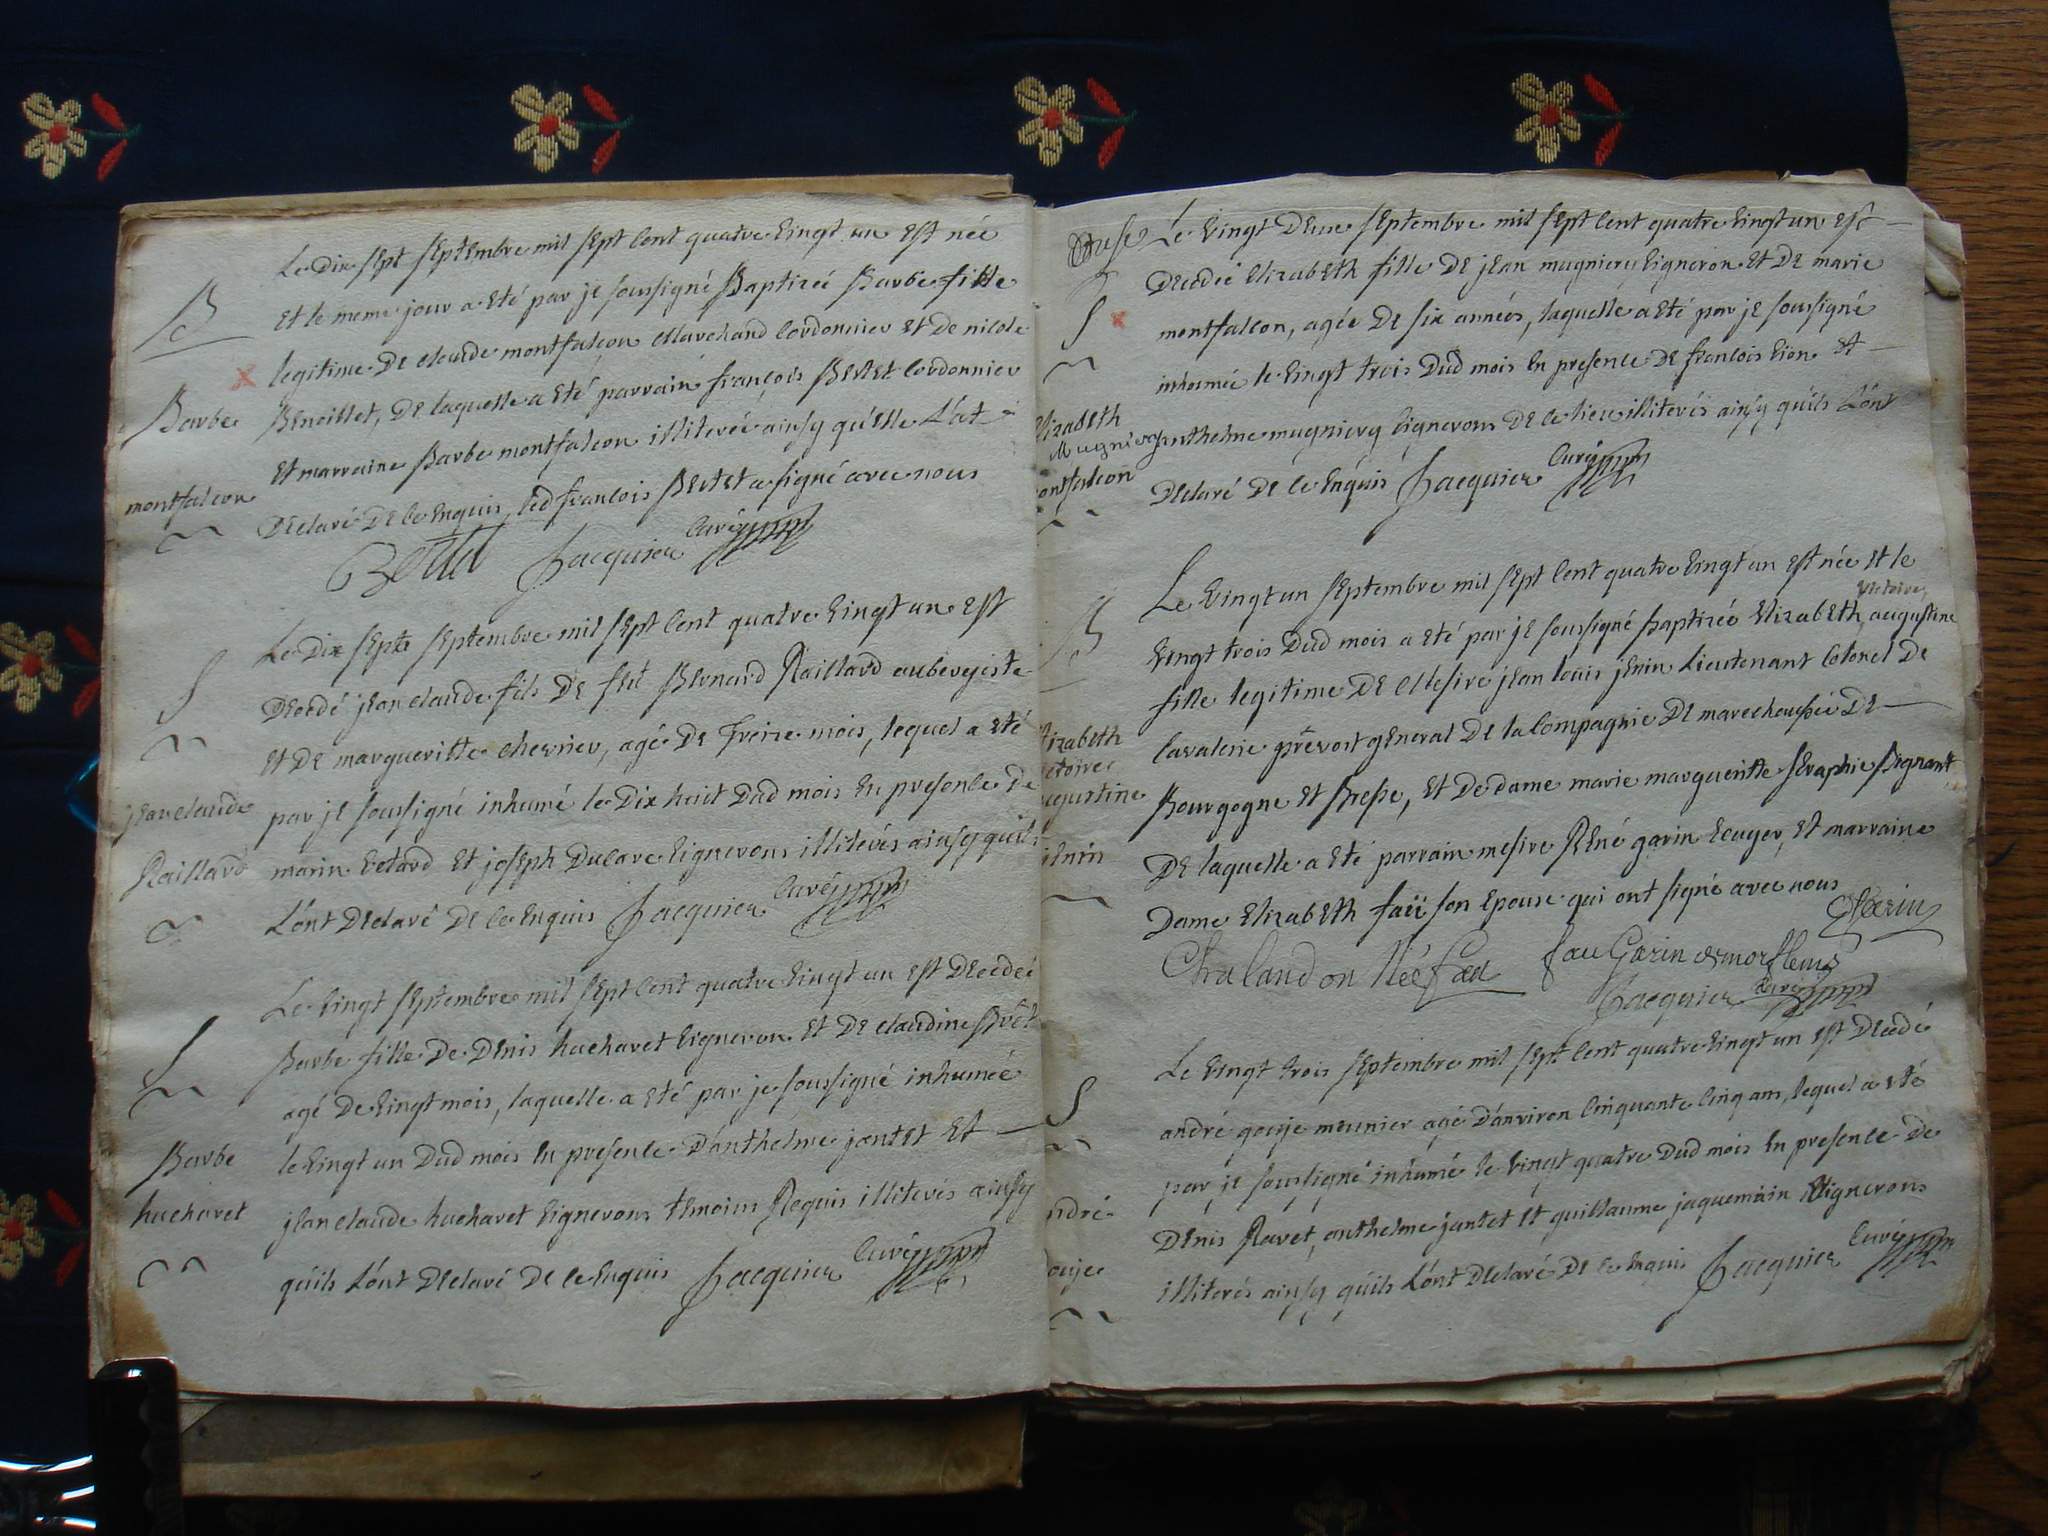 Le dix sept septembre mil sept cent quatre vingt un est née
B
et le meme jour a eté par je soussigné Baptizée Barbe fille
legitime de claude montfalcon Marchand Cordonnier et de nicole
Barbe
Benoillet, de laquelle a eté parrain françois Bertet Cordonnier
et marraine Barbe montfalcon illiterée ainsy qu'elle l'at
montfalcon
declaré de ce enquis, led françois Bertet a signé avec nous
Bertet Jacquier Curé
Le dix sept septembre mil sept cent quatre vingt un est
S
decedé jean claude fils de feu Bernard Raillard aubergiste
et de margueritte chernier, agé de treize mois, lequel a eté
jean claude
par je soussigné inhumé le dix huit dud mois en presence de
Raillard
marin Vetard et joseph Dulave vignerons illiterés ainsy quils
l'ont declaré de ce enquis Jacquier Curé
Le vingt septembre mil sept cent quatre vingt un est decedeé
S
Barbe fille de Denis hucharet vigneron et de claudine Brêt
agé de vingt mois, laquelle a eté par je soussigné inhumée
Barbe
le vingt un dud mois en presence d'anthelme jantet et
hucharet
jean claude hucharet vignerons temoins Requis illiterés ainsy
qu'ils l'ont declaré de ce enquis Jacquier Curé
Le vingt deux septembre mil sept cent quatre vingt un est
decedée elizabeth fille de jean mugniery vigneron et de marie
S
montfalcon, agée de six années, laquelle a eté par je soussigné
inhumée le vingt trois dud mois en presence de françois vion et
elizabeth
Mugniery
anthelme mugniery vignerons de ce lieu illiterés ainsy qu'ils l'ont
montfalcon
declaré de ce enquis Jacquier Curé
Le vingt un septembre mil sept cent quatre vingt un est née et le
victoire
B
vingt trois dud mois a eté par je soussigné baptizée elizabeth augustine
fille legitime de Messire jean louis jenin Lieutenant Colonel de
elizabeth
Cavalerie prévost general de la Compagnie de marechaussée de
victoire
augustine
Bourgogne et Bresse, et de dame marie margueritte seraphie Bignant
jenin
de laquelle a eté parrain mesire René garin Ecuyer, et marraine
Dame elizabeth faü son epouse qui ont signé avec nous
Jenin
Chalandon Née fau fau Garin
Jacquier Curé
Le vingt trois septembre mil sept cent quatre vingt un est decedé
S
andré gouje meunier agé d'anviron Cinquante Cinq ans, lequel a eté
par je soussigné inhumé le vingt quatre dud mois en presence de
andré
Denis Ravet, anthelme jantet et guillaume jaquemain Vignerons
gouje
illiterés ainsy qu'ils l'ont declaré de ce enquis Jacquier Curé